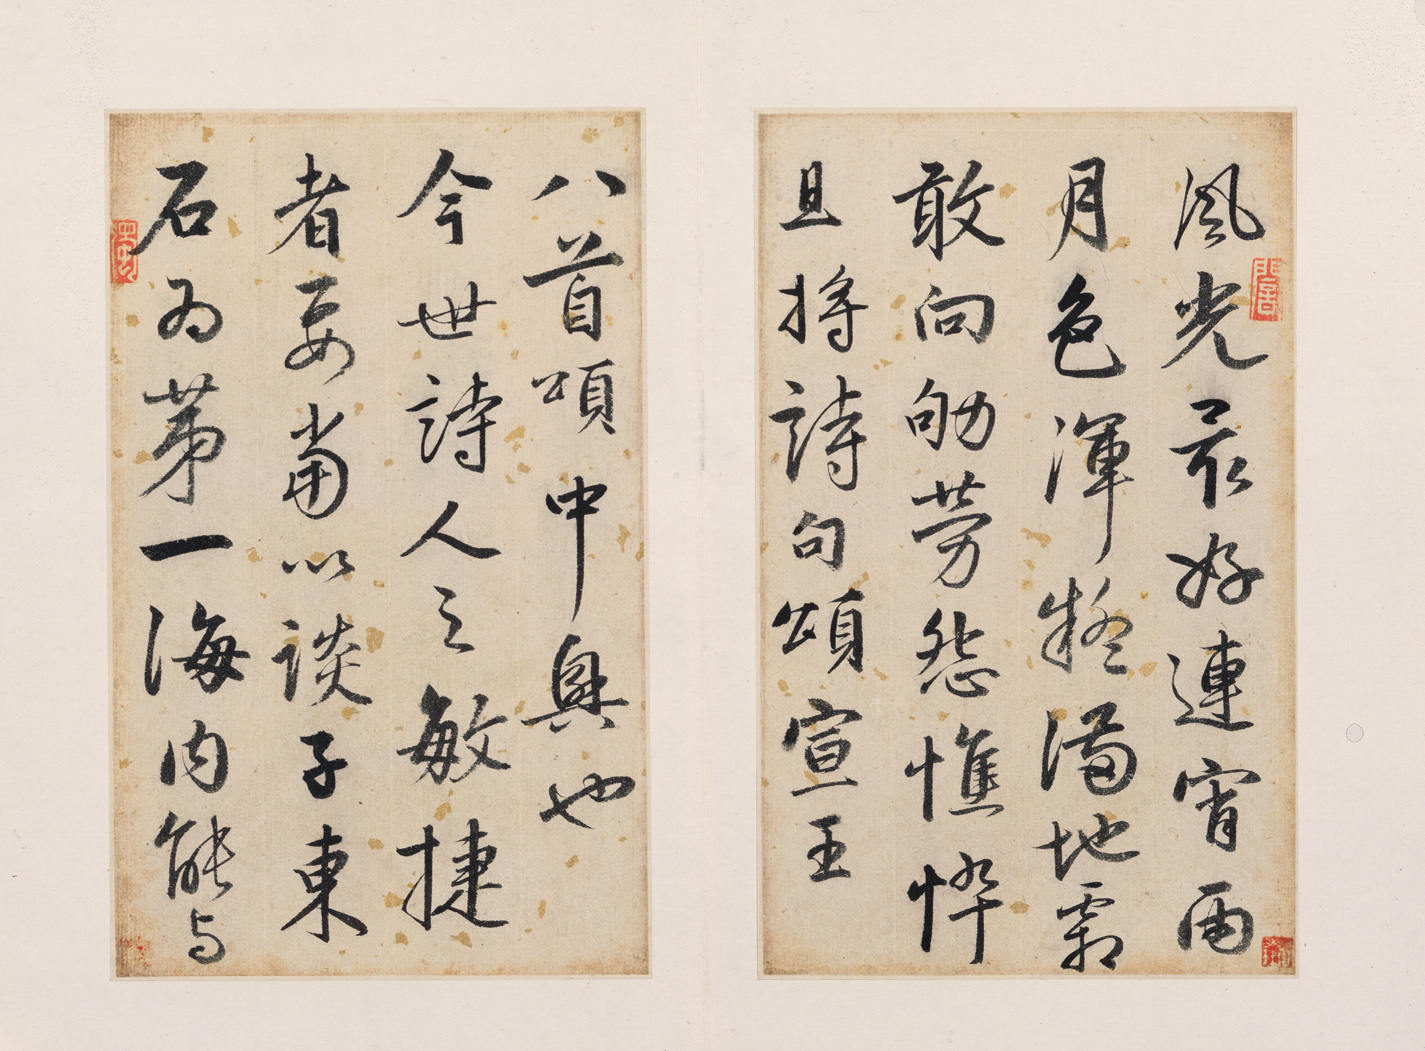 風光最好連宵雨
月色渾疑滿地霜
敢向劬勞怨憔悴
且將詩句頌宣王
八首頌中興也
今世詩人之敏捷
者要當以談子東
石為第一海内能与